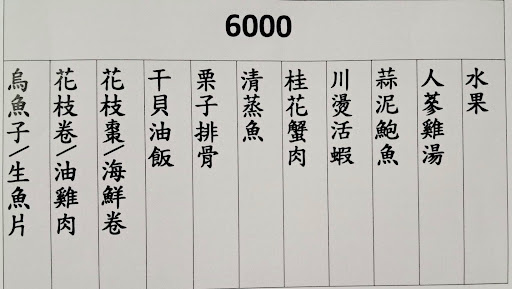 6000
烏魚子/生魚片
花枝卷/油雞肉
花枝棗/海鮮卷
干貝油飯
栗子排骨
清蒸魚
桂花蟹肉
川燙活蝦
蒜泥鮑魚
人蔘雞湯
水果